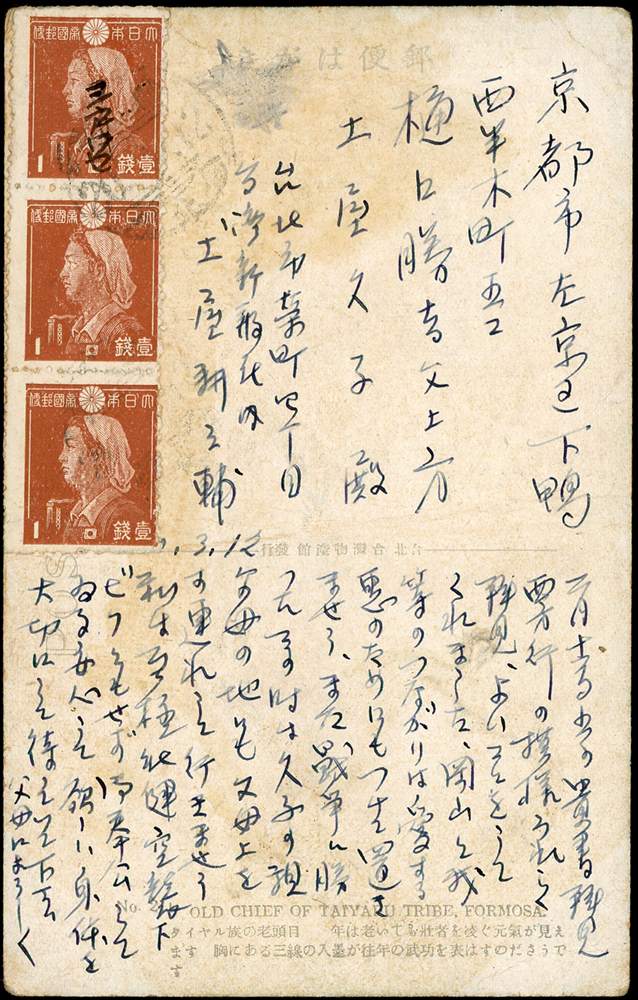 大日本帝國郵便
1
壹錢
大日本帝國郵便
1
壹錢
大日本帝國郵便
1
壹錢
郵便は
京都市左京区下鴨
西半木町五二
樋口勝吉父上方
土屋久子殿
台北市榮町四丁目
台湾新報社内
土屋耕之輔
台北 台灣物產館 發行
貴書拝見
西方行の模様うれしく
拝見、よいことをして
くれました、岡山と我
等のつながりは愛する
恵のためにもつけて置き
ませう、また戦争に勝
つた の時は久子の
父母の地にも父母上を
連れして行きませう
私は至極壮健空襲下
ビクともせず御奉公して
ゐる安心して 身体を
大切にして待 下さい
父母によろしく
No. OLD CHIEF OF TAIYARU TRIBE, FORMOSA.
タイヤル族の老頭目 年は老いても壯者を凌ぐ元氣が見え
ます 胸にある三線の入墨が往年の武功を表はすのださうで
す